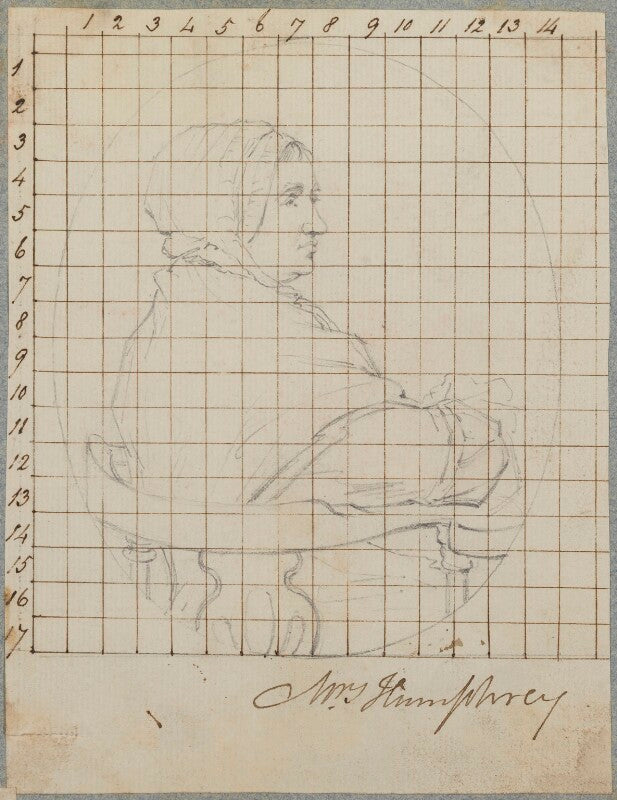 1 2 3 4 5 6 7 8 9 10 11 12 13 14
1
2
3
4
5
6
7
8
9
10
11
12
13
14
15
16
17
Mrs Humphrey